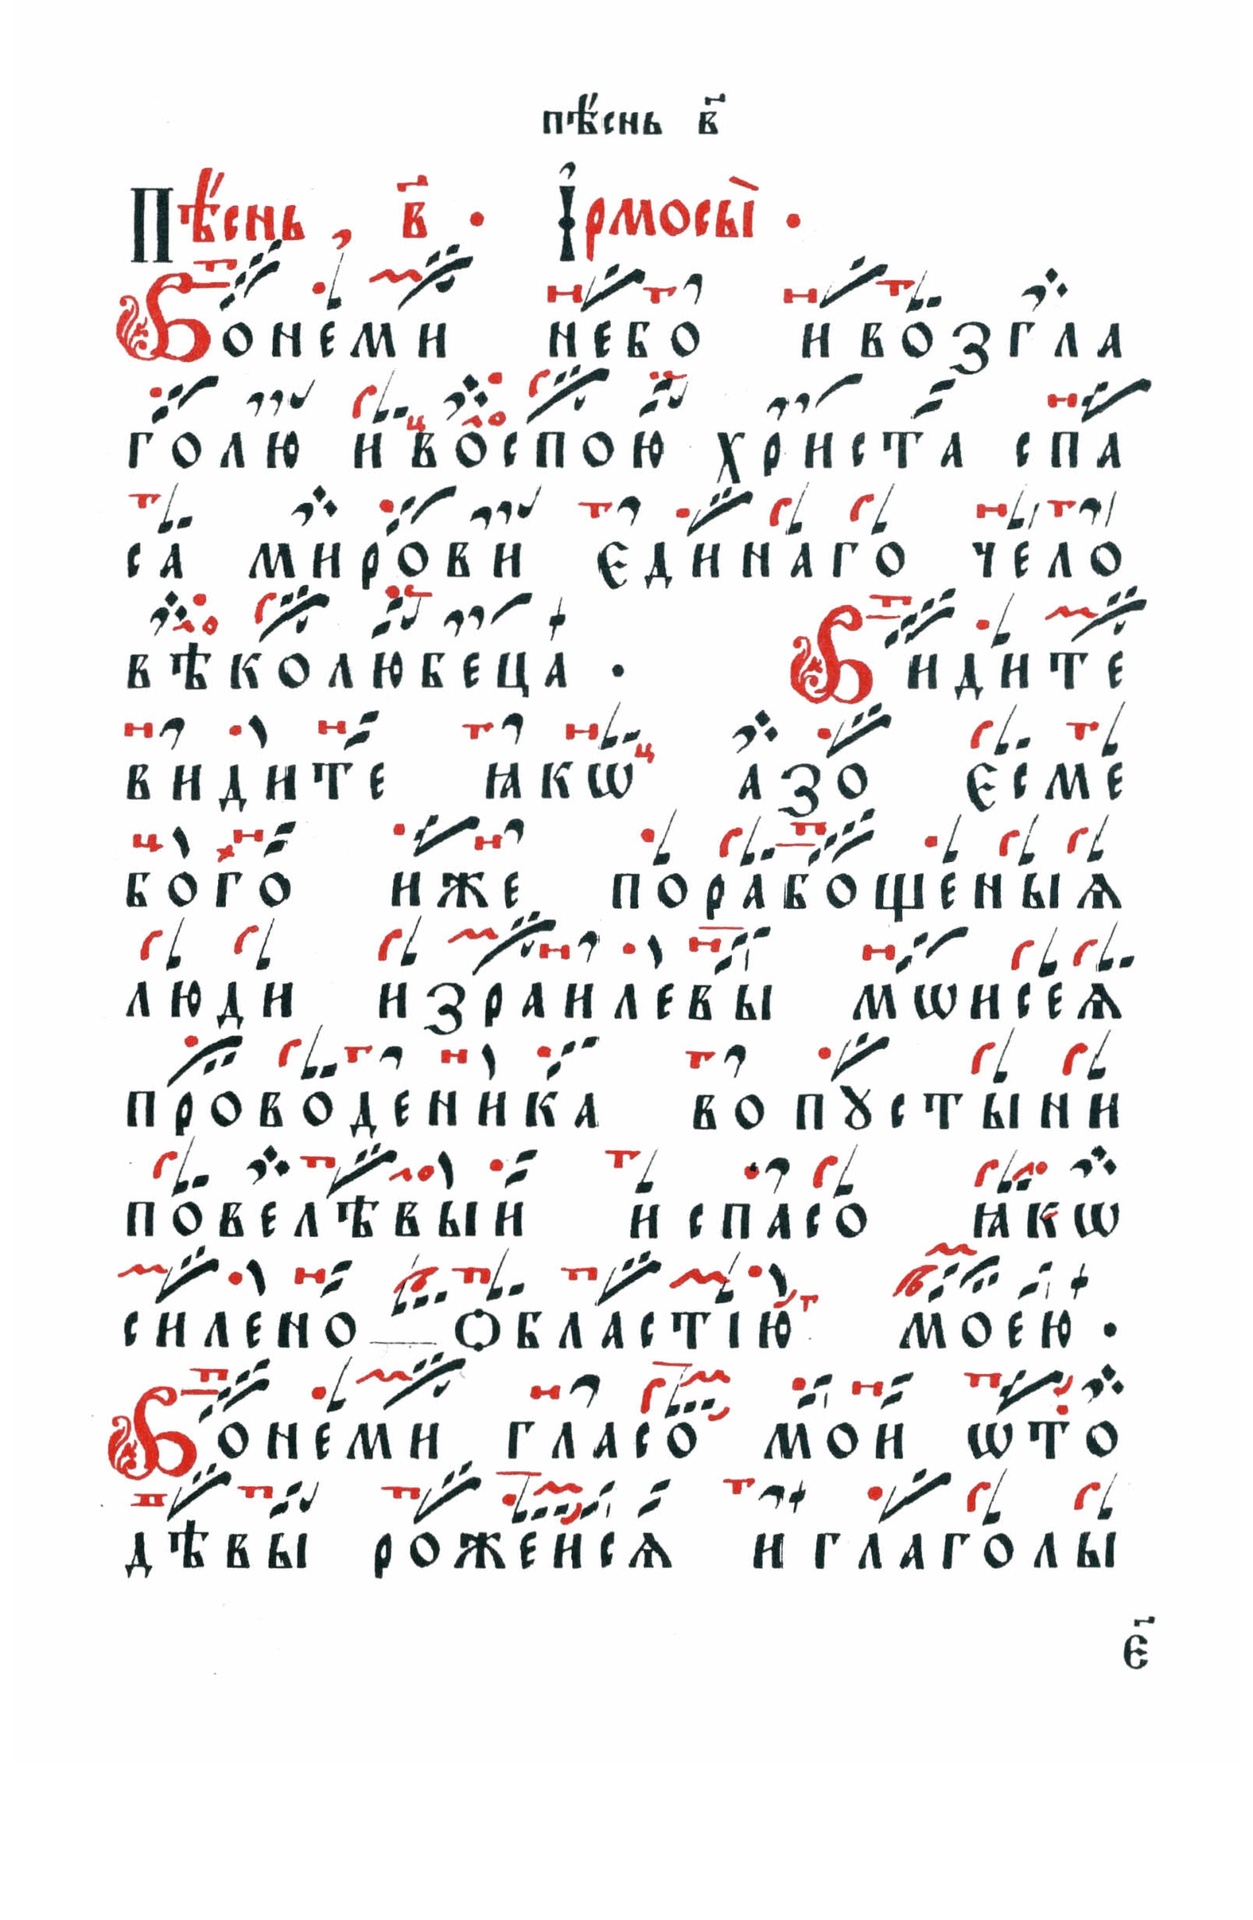 пѣ́снь в҃
Пѣ́снь, в҃ · І҆рмосы̀ ·
Вонеми небо и возгла
голю и воспою христа спа
са мирови єдинаго чело
вѣколюбеца · Видите
видите ꙗкѡ азо єсме
бого иже порабощеныѧ
люди израилевы мѡисеѧ
проводеника во пꙋстыни
повелѣвыи испасо ꙗкѡ
силено ѻбластію моею ·
Вонеми гласо мои ѡто
дѣвы рожеисѧ и глаголы
є҃